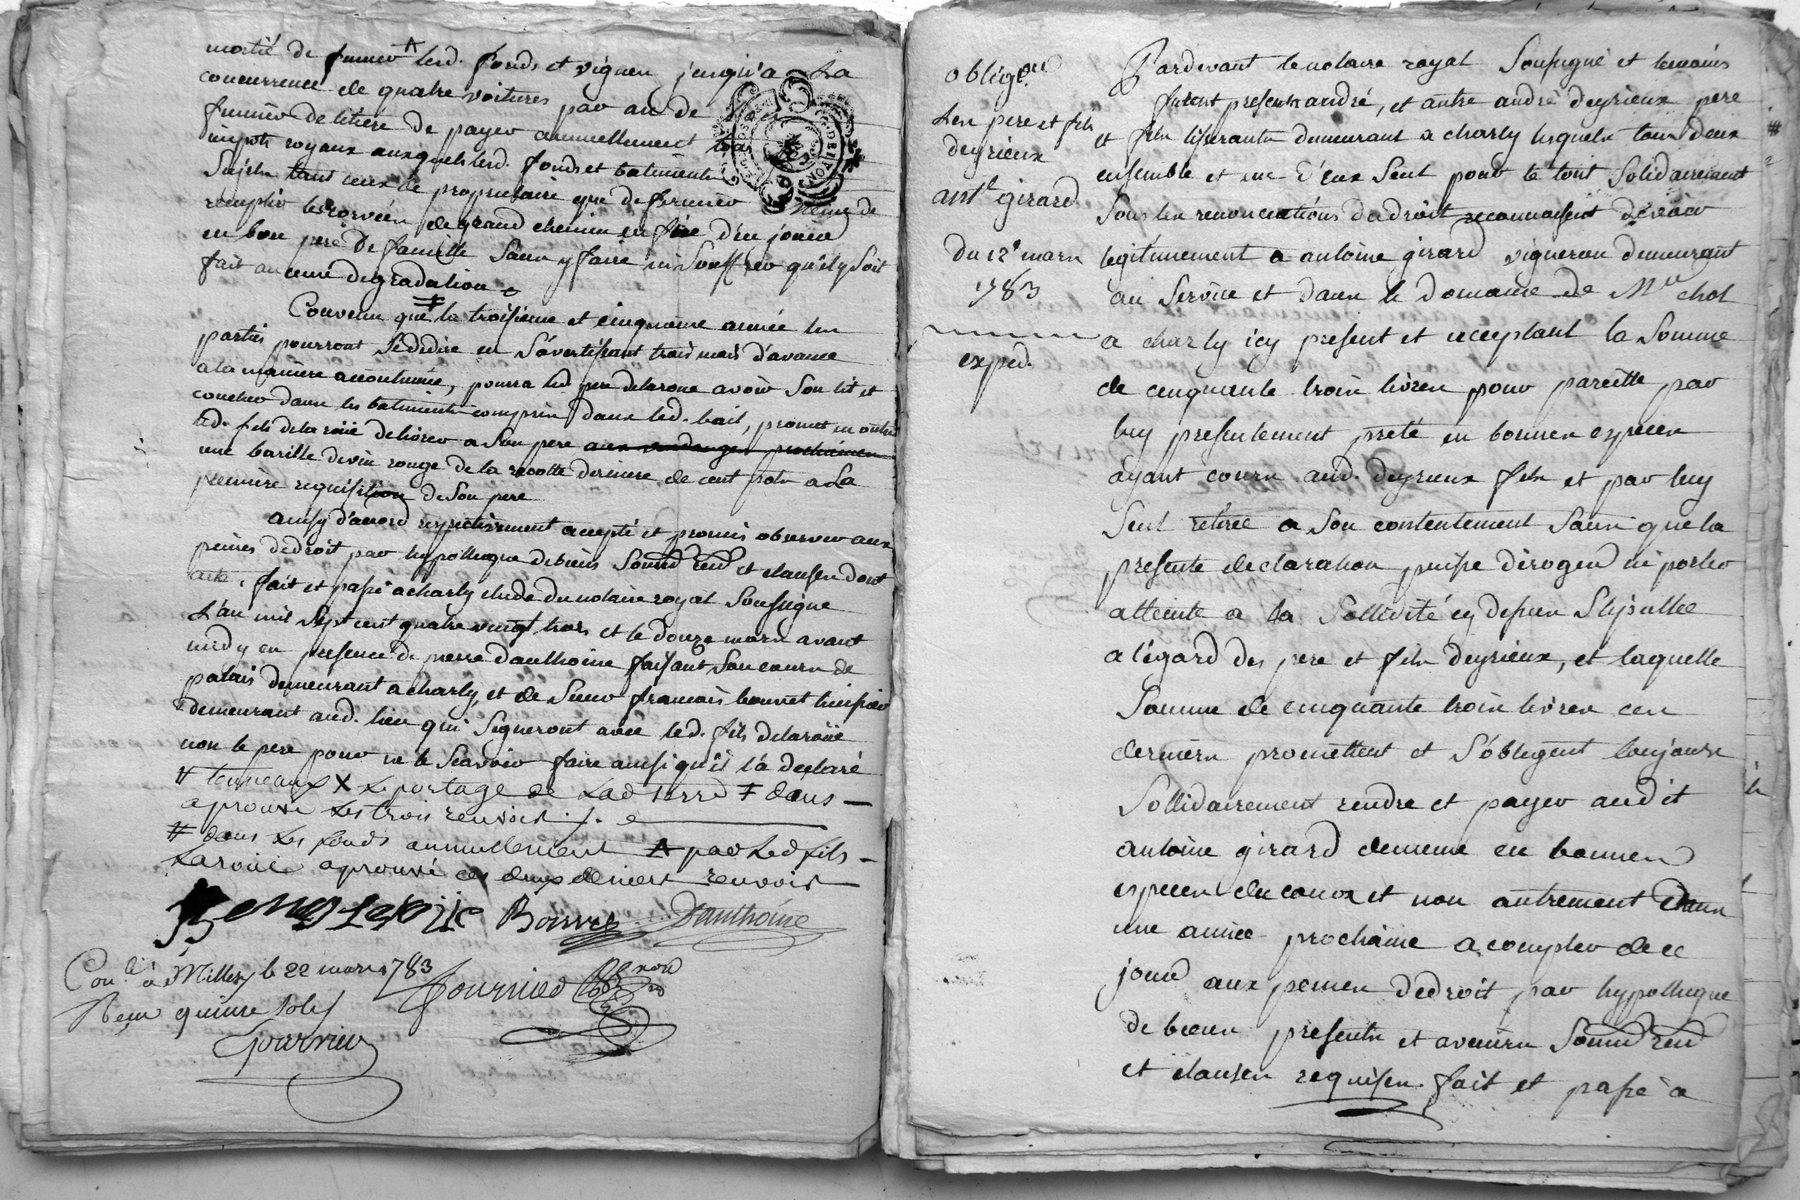 moitié de fumier ^ lesd. fonds et vignes jusqu'a la
concurrence de quatre voitures par an de
fumier de litiere de payer annuellement tous
impots royaux auxquels lesd. fonds et batiments
Sujets tant ceux de proprietaire que de fermier même de
remplir les corvéés de grand chemin en fin d'en jouir
en bon pere de famille Sans y faire ni Souffrir qu'il y Soit
fait aucune degradation
Convenu que ‡ la troisieme et cinquieme année les
parties pourront Sedédire en S'avertissant trois mois d'avance
a la maniere accoutumée, pourra led. pere delaroue avoir Son lit et
coucher dans les batiments compris dans led. bail, promet en outre
led. fils delaroüe delivrer a Son pere aux vendanges prochaines
une barille de vin rouge de la recolte derniere de cent pots a La
premiere requisition de Son pere
ainsy d'accord respectivement accepté et promis observer aux
peines dedroit par hypotheque debiens Soumd. rend. et clauses dont
acte, fait et passé a charly etude du notaire royal Soussigne
L'an mil Sept cent quatre vingt trois et le douze mars avant
midy en presence de pierre dauthoine faisant Son cours de
palais demeurant a charly, et de Sieur francois bouvet huissier
demeurant aud. lieu qui Signeront avec led. fils delaroüe
non le pere pour ne le Scavoir faire ainsi qu'il l'a declaré
# tonneaux X Le portage de Lad terre ‡ dans —
aprouvé Les trois renvois ./.
# dans Les fonds annuellement ^ par Led fils —
Laroüe aprouvé ces deux derniers renvois
Bouvet Dauthoine
Con.lé à Millery le 22 mars 1783
Reçu quinze Sols
Fournier
obligon.
Les pere et fils
deyrieux
antne girard
Du 12e mars
1783
exped.
Pardevant le notaire royal Soussigné et temoins
furent presents andré, et autre andré deyrieux pere
et fils tisserants demeurant a charly lesquels tous deux
ensemble et un d'eux Seul pour le tout Solidairement
Sous les renonciations de droit reconnoissent devoir
legitimement a antoine girard vigneron demeurant
au Service et dans le domaine de Mr chol
a charly icy present et acceptant la Somme
de cinquante trois livres pour pareille par
luy presentement preté en bonnes especes
ayant cours aud. deyrieux fils et par luy
Seul retirée a Son contentement Sans que la
presente declaration puisse déroger ni porter
atteinte a la Sollidité cy dessus Stipullée
a l'égard des pere et fils deyrieux, et laquelle
Somme de cinquante trois livres ces
derniers promettent et S'obligent toujours
Sollidairement rendre et payer audit
antoine girard demême en bonnes
especes du cours et non autrement Dans
une année prochaine a compter de ce
jour aux peines dedroit par hypotheque
de biens presents et avenirs Soumd. rend.
et clauses requises. fait et passé a